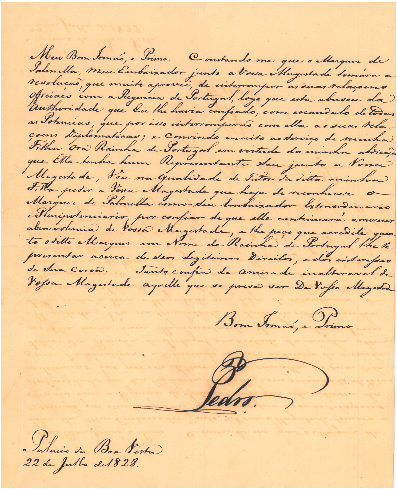 Meu Bom Irmaõ, e Primo. Constando me que o Marquez de
Palmella, Meu Embaixador junto a Vossa Magestade tomára a
resoluçaõ, que muito approvo, de interromper as suas relaçoens
officiaes com a Regencia de Portugal, logo que esta abusou da
Authoridade que Eu lhe havia confiado, com escandalo de todas
as Potencias, que por isso interromperaõ com ella as suas rela-
çoens Diplomaticas; e Convindo muito ao serviço de minha
Filha Ora Rainha de Portugal em virtude da minha abdicaçaõ
que Ella tenha hum Representante Seu junto a Vossa
Magestade, Vou na Qualidade de Tutor da ditta minha
Filha pedir a Vossa Magestade que haja de reconhecer o
Marquez de Palmella como seu Embaixador Extraordinario
e Plenipotenciario, por confiar de que elle continuará a merecer
a benevolencia de Vossa Magestade, e lhe peço que acredite quan-
to o ditto Marquez em Nome da Rainha de Portugal lhe
presentar acerca de seos legitimos Direitos, e dos interesses
da Sua Coroa. Tanto confia da amizade inalteravel de
Vossa Magestade aquelle que se preza ser De Vossa Magestade
Bom Irmaõ, e Primo
Pedro.
Palacio da Boa Vista
22 de Julho de 1828.